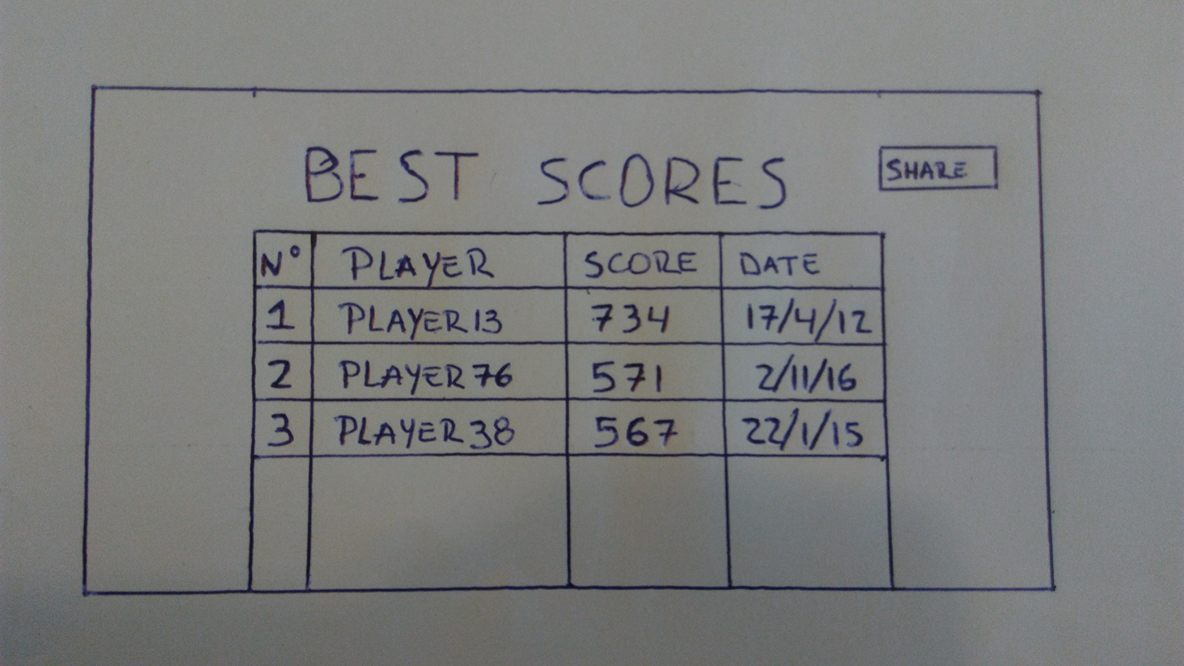 BEST SCORES
SHARE
N° PLAYER SCORE DATE
1 PLAYER13 734 17/4/12
2 PLAYER76 571 2/11/16
3 PLAYER38 567 22/1/15